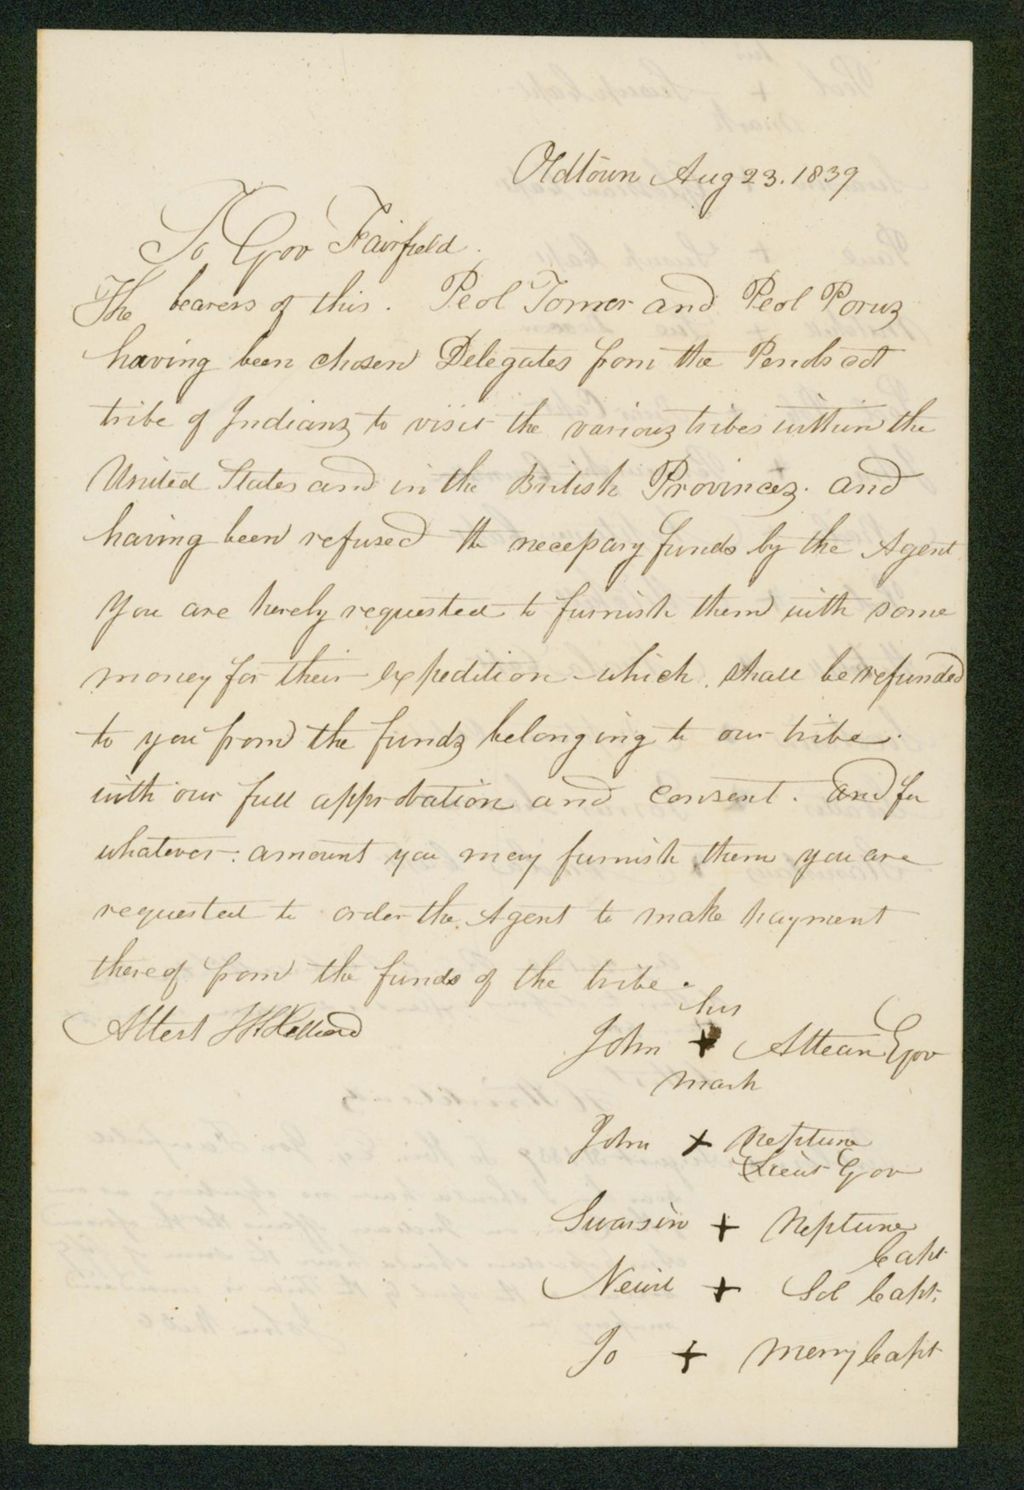 Oldtown Aug 23. 1839
To Gov Fairfield.
The bearers of this. Peol Tomer and Peol Porus
having been chosen Delegates from the Penobscot
tribe of Indians to visit the various tribes within the
United States and in the British Provinces. and
having been refused the necessary funds by the Agent
You are hereby requested to furnish them with some
money for their expedition which shall be refunded
to you from the funds belonging to our tribe.
with our full approbation and consent. And for
whatever amount you may furnish them you are
requested to order the Agent to make payment
thereof from the funds of the tribe.
Attest
his
John + Attean Gov
mark
John + Neptune
Lieut Gov
Swassin + Neptune
Capt
Newil + Sol Capt.
Jo + Merry Capt